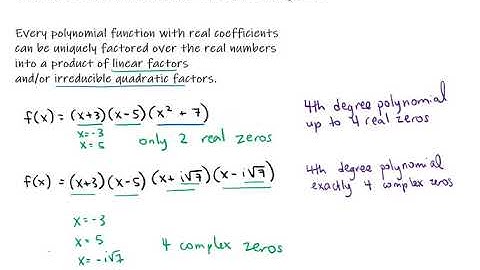 Every polynomial function with real coefficients
can be uniquely factored over the real numbers
into a product of linear factors
and/or irreducible quadratic factors.
f(x) = (x+3)(x-5)(x² + 7)
x=-3
x=5
only 2 real zeros
4th degree polynomial
up to 4 real zeros
f(x) = (x+3)(x-5)(x+i√7)(x-i√7)
4th degree polynomial
exactly 4 complex zeros
x=-3
x=5
x=-i√7
4 complex zeros